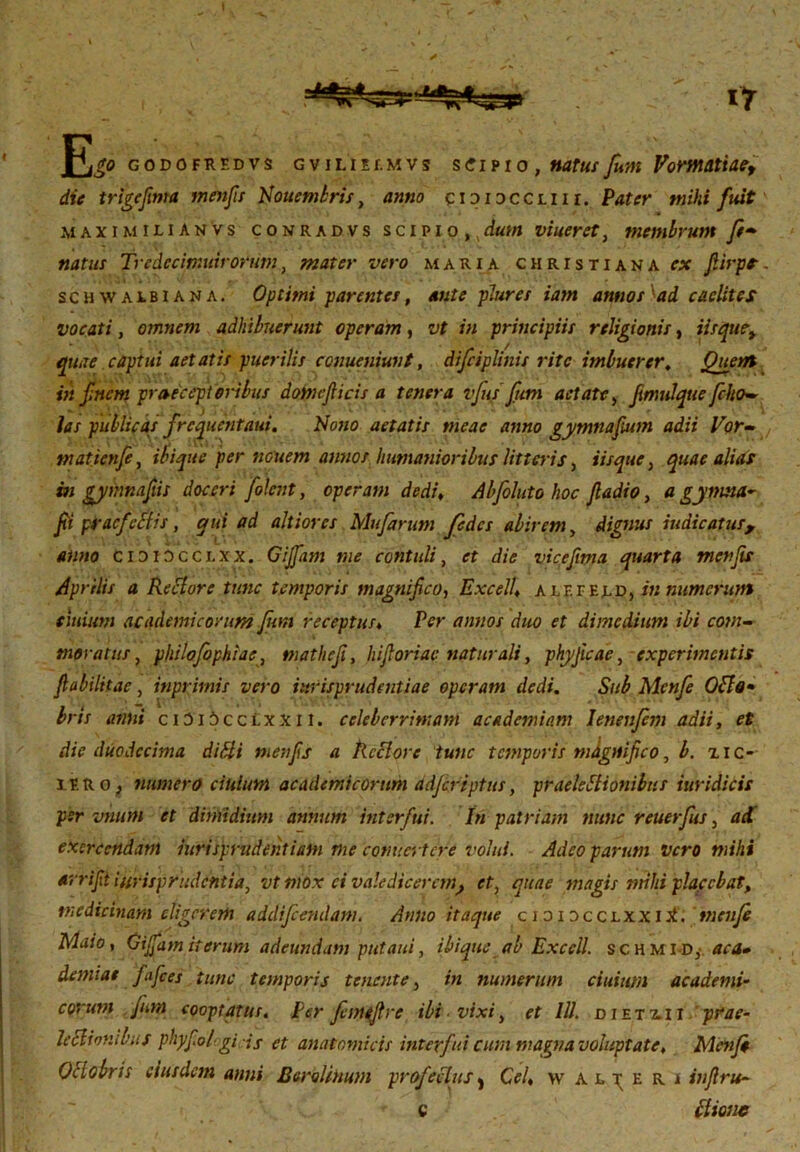 17
Ego GODOFREDVS GVILIELMVS SCIPIO, natus ſum Vormatiae,
die trigeſima menſis Nouembris, anno CIƆIƆCCLIII. Pater mihi fuit
MAXIMILIANVS CONRADVS SCIPIO, dum viueret, membrum ſe-
natus Tredecimuirorum, mater vero MARIA CHRISTIANA ex ſtirpe
SCHWALBIANA. Optimi parentes, ante plures iam annos ad caelites
vocati, omnem adhibuerunt operam, vt in principiis religionis, iisque,
quae captui aetatis puerilis conueniunt, diſciplinis rite imbuerer. Quem
in finem praeceptoribus domeſticis a tenera vſus ſum aetate, ſimulque ſcho-
las publicas frequentaui. Nono aetatis meae anno gymnaſium adii Vor-
matienſe, ibique per nouem annos humanioribus litteris, iisque, quae alias
in gymnaſiis doceri ſolent, operam dedi. Abſoluto hoc ſtadio, a gymna-
ſii praefectis, qui ad altiores Muſarum ſedes abirem, dignus iudicatus,
anno CIƆIƆCCLXX. Giſſam me contuli, et die viceſima quarta menſis
Aprilis a Rectore tunc temporis magnifico, Excell. ALEFELD, in numerum
ciuium academicorum ſum receptus. Per annos duo et dimedium ibi com-
moratus, philoſophiae, matheſi, hiſtoriae naturali, phyſicae, experimentis
ſtabilitae, inprimis vero iurisprudentiae operam dedi. Sub Menſe Octo-
bris anni CIƆIƆCCLXXII. celeberrimam academiam Ienenſem adii, et
die duodecima dicti menſis a Rectore tunc temporis magnifico, b. ZIC-
LERO, numero ciuium academicorum adſcriptus, praelectionibus iuridicis
per vnum et dimidium annum interfui. In patriam nunc reuerſus, ad
exercendam iurisprudentiam me conuertere volui. Adeo parum vero mihi
arriſit iurisprudentia, vt mox ei valedicerem, et, quae magis mihi placebat,
medicinam eligerem addiſcendam. Anno itaque CIƆIƆCCLXXIX. menſe
Maio, Giſſam iterum adeundam putaui, ibique ab Excell. SCHMID, aca-
demiae faſces tunc temporis tenente, in numerum ciuium academi-
corum ſum cooptatus. Per ſemeſtre ibi vixi, et Ill. DIETZII prae-
lectionibus phyſiologicis et anatomicis interfui cum magna voluptate. Menſe
Octobris eiusdem anni Berolinum profectus, Cel. WALTERI inſtru-
C ctione